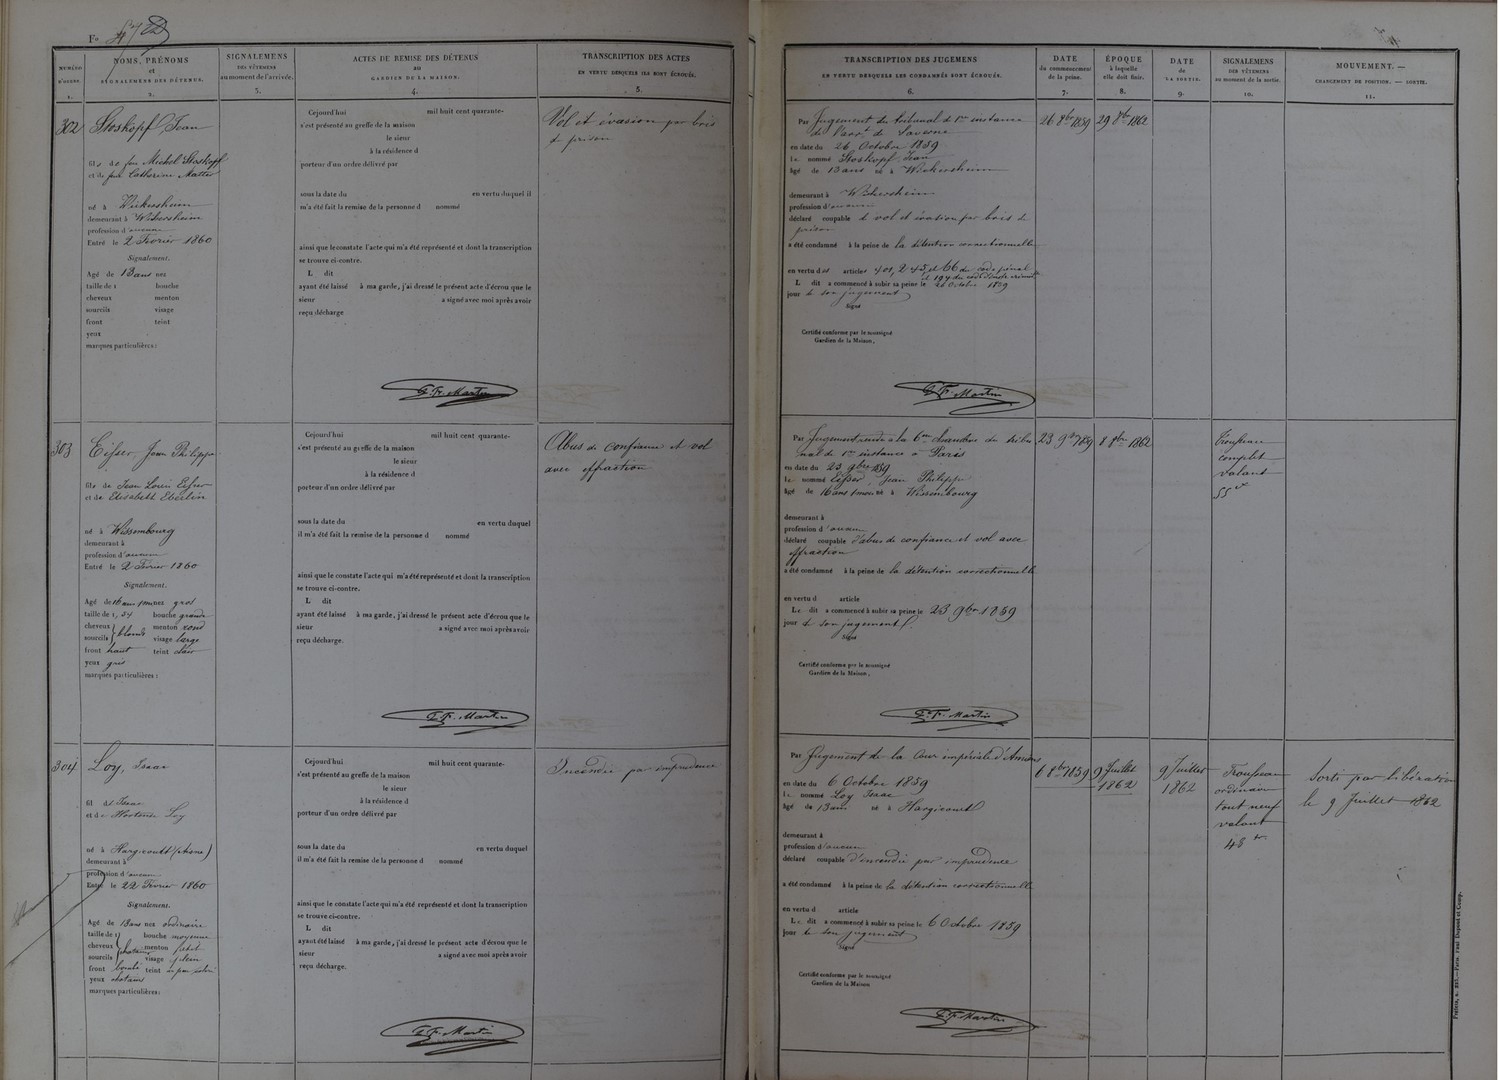 Fo
NUMÉRO D'ORDRE.
1.
NOMS, PRÉNOMS
et
SIGNALEMENS DES DÉTENUS.
2.
SIGNALEMENS
DES VÊTEMENS
au moment de l'arrivée.
3.
ACTES DE REMISE DES DÉTENUS
AU
GARDIEN DE LA MAISON.
4.
TRANSCRIPTION DES ACTES
EN VERTU DESQUELS ILS SONT ÉCROUÉS.
5.
302
Stoskopf Jean
fils de feu Michel Stoskopf
et de feue Catherine Matter
né à Wickersheim
demeurant à Wickersheim
profession d'aucune
Entré le 2 Février 1860
Signalement.
Agé de 13 ans nez
taille de 1 bouche
cheveux menton
sourcils visage
front teint
yeux
marques particulières :
Cejourd'hui mil huit cent quarante-
s'est présenté au greffe de la maison
le sieur
à la résidence d
porteur d'un ordre délivré par
sous la date du en vertu duquel il
m'a été fait la remise de la personne d nommé
ainsi que le constate l'acte qui m'a été représenté et dont la transcription
se trouve ci-contre.
L dit
ayant été laissé à ma garde, j'ai dressé le présent acte d'écrou que le
sieur a signé avec moi après avoir
reçu décharge
Martin
Vol et évasion par bris
de prison
303
Eifser, Jean Philippe
fils de Jean Louis Eifser
et de Elisabeth Eberlin
né à Wissembourg
demeurant à
profession d'aucune
Entré le 2 Février 1860
Signalement.
Agé de 16 ans nez gros
taille de 1, 54 bouche grande
cheveux blonds menton rond
sourcils visage large
front haut teint clair
yeux gris
marques particulières :
Cejourd'hui mil huit cent quarante-
s'est présenté au greffe de la maison
le sieur
à la résidence d
porteur d'un ordre délivré par
sous la date du en vertu duquel
il m'a été fait la remise de la personne d nommé
ainsi que le constate l'acte qui m'a été représenté et dont la transcription
se trouve ci-contre.
L dit
ayant été laissé à ma garde, j'ai dressé le présent acte d'écrou que le
sieur a signé avec moi après avoir
reçu décharge.
Martin
Abus de confiance et vol
avec effraction
304
Loy, Isaac
fil de Isaac
et de Hortense Loy
né à Hargicourt
demeurant à
profession d'aucune
Entré le 22 Février 1860
Signalement.
Agé de 13 ans nez ordinaire
taille de 1 bouche moyenne
cheveux châtains menton
sourcils visage plein
front bombé teint
yeux châtains
marques particulières :
Cejourd'hui mil huit cent quarante-
s'est présenté au greffe de la maison
le sieur
à la résidence d
porteur d'un ordre délivré par
sous la date du en vertu duquel
il m'a été fait la remise de la personne d nommé
ainsi que le constate l'acte qui m'a été représenté et dont la transcription
se trouve ci-contre.
L dit
ayant été laissé à ma garde, j'ai dressé le présent acte d'écrou que le
sieur a signé avec moi après avoir
reçu décharge.
Martin
Incendie par imprudence
TRANSCRIPTION DES JUGEMENS
EN VERTU DESQUELS LES CONDAMNÉS SONT ÉCROUÉS.
6.
DATE
du commencement
de la peine.
7.
ÉPOQUE
à laquelle
elle doit finir.
8.
DATE
de
LA SORTIE.
9.
SIGNALEMENS
DES VÊTEMENS
au moment de la sortie.
10.
MOUVEMENT. —
CHANGEMENT DE POSITION. — SORTIE.
11.
Par Jugement du tribunal de 1re instance
de l'arrt de Saverne
en date du 26 Octobre 1859
le nommé Stoskopf Jean
âgé de 13 ans né à Wickersheim
demeurant à Wickersheim
profession d'aucune
déclaré coupable de vol et évasion par bris de
prison
a été condamné à la peine de la détention correctionnelle
en vertu des articles 401, 245 et 66 du code pénal
et 194 du code d'inst. crimin.
L dit a commencé à subir sa peine le 26 Octobre 1859
jour de son jugement
Signé
Certifié conforme par le soussigné
Gardien de la Maison.
Martin
26 8bre 1859
29 8bre 1862
Par Jugement rendu à la 6me chambre du tribu
nal de 1re instance à Paris
en date du 23 9bre 1859
le nommé Eifser, Jean Philippe
âgé de 16 ans 1 mois né à Wissembourg
demeurant à
profession d'aucune
déclaré coupable d'abus de confiance et vol avec
effraction
a été condamné à la peine de la détention correctionnelle
en vertu d article
Le dit a commencé à subir sa peine le 23 9bre 1859
jour de son jugement
Signé
Certifié conforme par le soussigné
Gardien de la Maison.
Martin
23 9bre 1859
8 8bre 1862
Trousseau
complet
valant
55 f
Par Jugement de la Cour impériale d'Amiens
en date du 6 Octobre 1859
le nommé Loy Isaac
âgé de 13 ans né à Hargicourt
demeurant à
profession d'aucune
déclaré coupable d'incendie par imprudence
a été condamné à la peine de la détention correctionnelle
en vertu d article
Le dit a commencé à subir sa peine le 6 Octobre 1859
jour de son jugement
Signé
Certifié conforme par le soussigné
Gardien de la Maison
Martin
6 8bre 1859
9 Juillet
1862
9 Juillet
1862
Trousseau
ordinaire
tout neuf
valant
48 fr
Sorti par libération
le 9 Juillet 1862
Prisons, n. 257.—Paris. Paul Dupont et Comp.